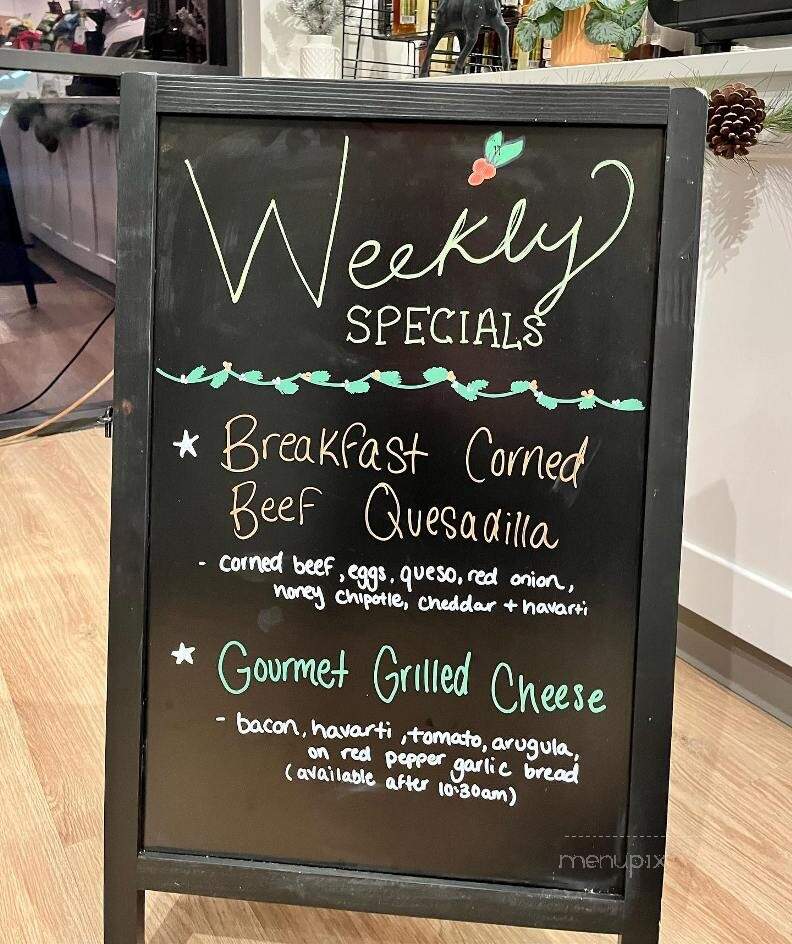 Weekly
SPECIALS
Breakfast Corned
Beef Quesadilla
- corned beef, eggs, queso, red onion,
honey chipotle, cheddar + havarti
Gourmet Grilled Cheese
- bacon, havarti, tomato, arugula,
on red pepper garlic bread
(available after 10:30am)
menupix